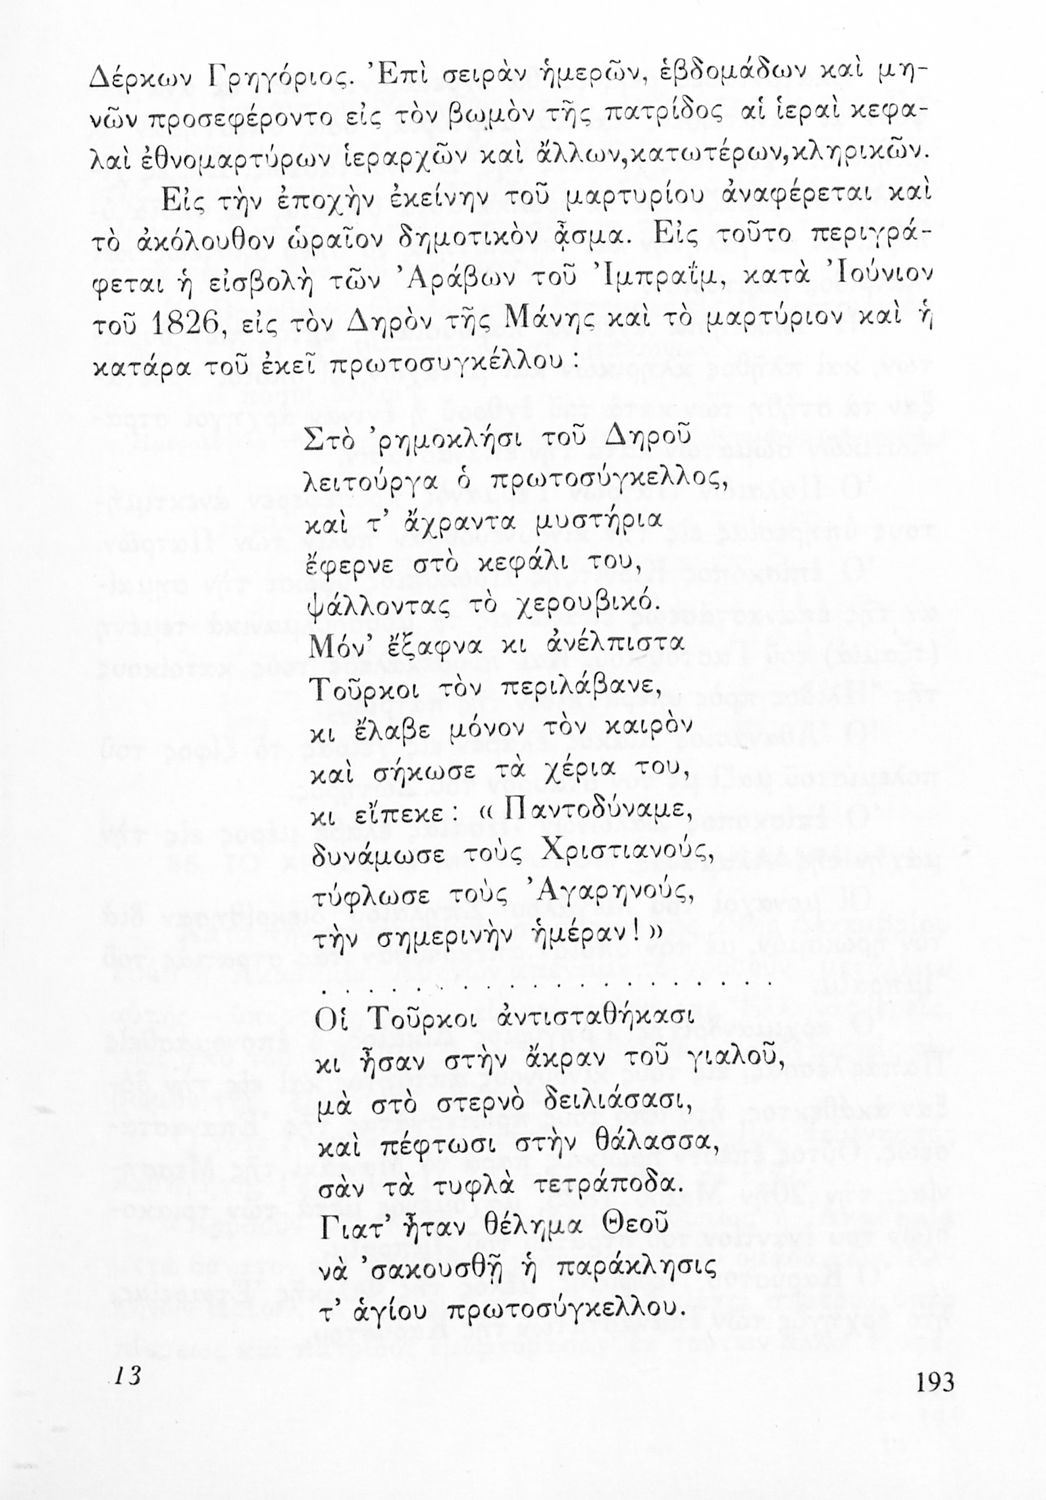 Δέρκων Γρηγόριος. Ἐπὶ σειρὰν ἡμερῶν, ἑβδομάδων καὶ μη-
νῶν προσεφέροντο εἰς τὸν βωμὸν τῆς πατρίδος αἱ ἱεραὶ κεφα-
λαὶ ἐθνομαρτύρων ἱεραρχῶν καὶ ἄλλων,κατωτέρων,κληρικῶν.
Εἰς τὴν ἐποχὴν ἐκείνην τοῦ μαρτυρίου ἀναφέρεται καὶ
τὸ ἀκόλουθον ὡραῖον δημοτικὸν ᾆσμα. Εἰς τοῦτο περιγρά-
φεται ἡ εἰσβολὴ τῶν Ἀράβων τοῦ Ἰμπραΐμ, κατὰ Ἰούνιον
τοῦ 1826, εἰς τὸν Δηρὸν τῆς Μάνης καὶ τὸ μαρτύριον καὶ ἡ
κατάρα τοῦ ἐκεῖ πρωτοσυγκέλλου :
Στὸ ᾿ρημοκλήσι τοῦ Δηροῦ
λειτούργα ὁ πρωτοσύγκελλος,
καὶ τ᾿ ἄχραντα μυστήρια
ἔφερνε στὸ κεφάλι του,
ψάλλοντας τὸ χερουβικό.
Μόν᾿ ἔξαφνα κι ἀνέλπιστα
Τοῦρκοι τὸν περιλάβανε,
κι ἔλαβε μόνον τὸν καιρὸν
καὶ σήκωσε τὰ χέρια του,
κι εἴπεκε : « Παντοδύναμε,
δυνάμωσε τοὺς Χριστιανούς,
τύφλωσε τοὺς Ἀγαρηνούς,
τὴν σημερινὴν ἡμέραν! »
. . . . . . . . . . . . . . . . . . . .
Οἱ Τοῦρκοι ἀντισταθήκασι
κι ἦσαν στὴν ἄκραν τοῦ γιαλοῦ,
μὰ στὸ στερνὸ δειλιάσασι,
καὶ πέφτωσι στὴν θάλασσα,
σὰν τὰ τυφλὰ τετράποδα.
Γιατ᾿ ἦταν θέλημα Θεοῦ
νὰ ᾿σακουσθῇ ἡ παράκλησις
τ᾿ ἁγίου πρωτοσύγκελλου.
13
193